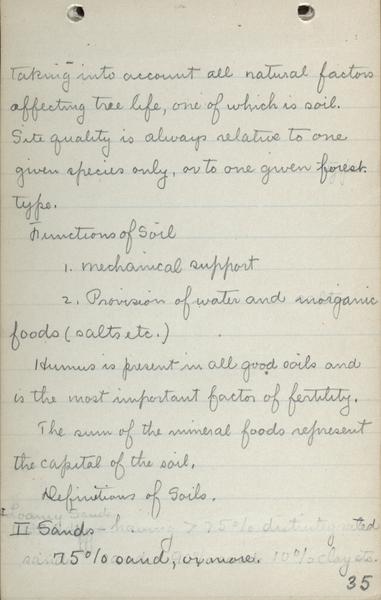 taking into account all natural factors
affecting tree life, one of which is soil.
Site quality is always relative to one
given species only, or to one given forest
type.
Functions of Soil
1. mechanical support
2. Provision of water and inorganic
foods (salts etc.)
Humus is present in all good soils and
is the most important factor of fertility.
The sum of the mineral foods represent
the capital of the soil.
Definitions of Soils.
Loamy Sands
I - having > 75% disintegrated
II Sands
75% sand, or more. 10% clay etc.
35